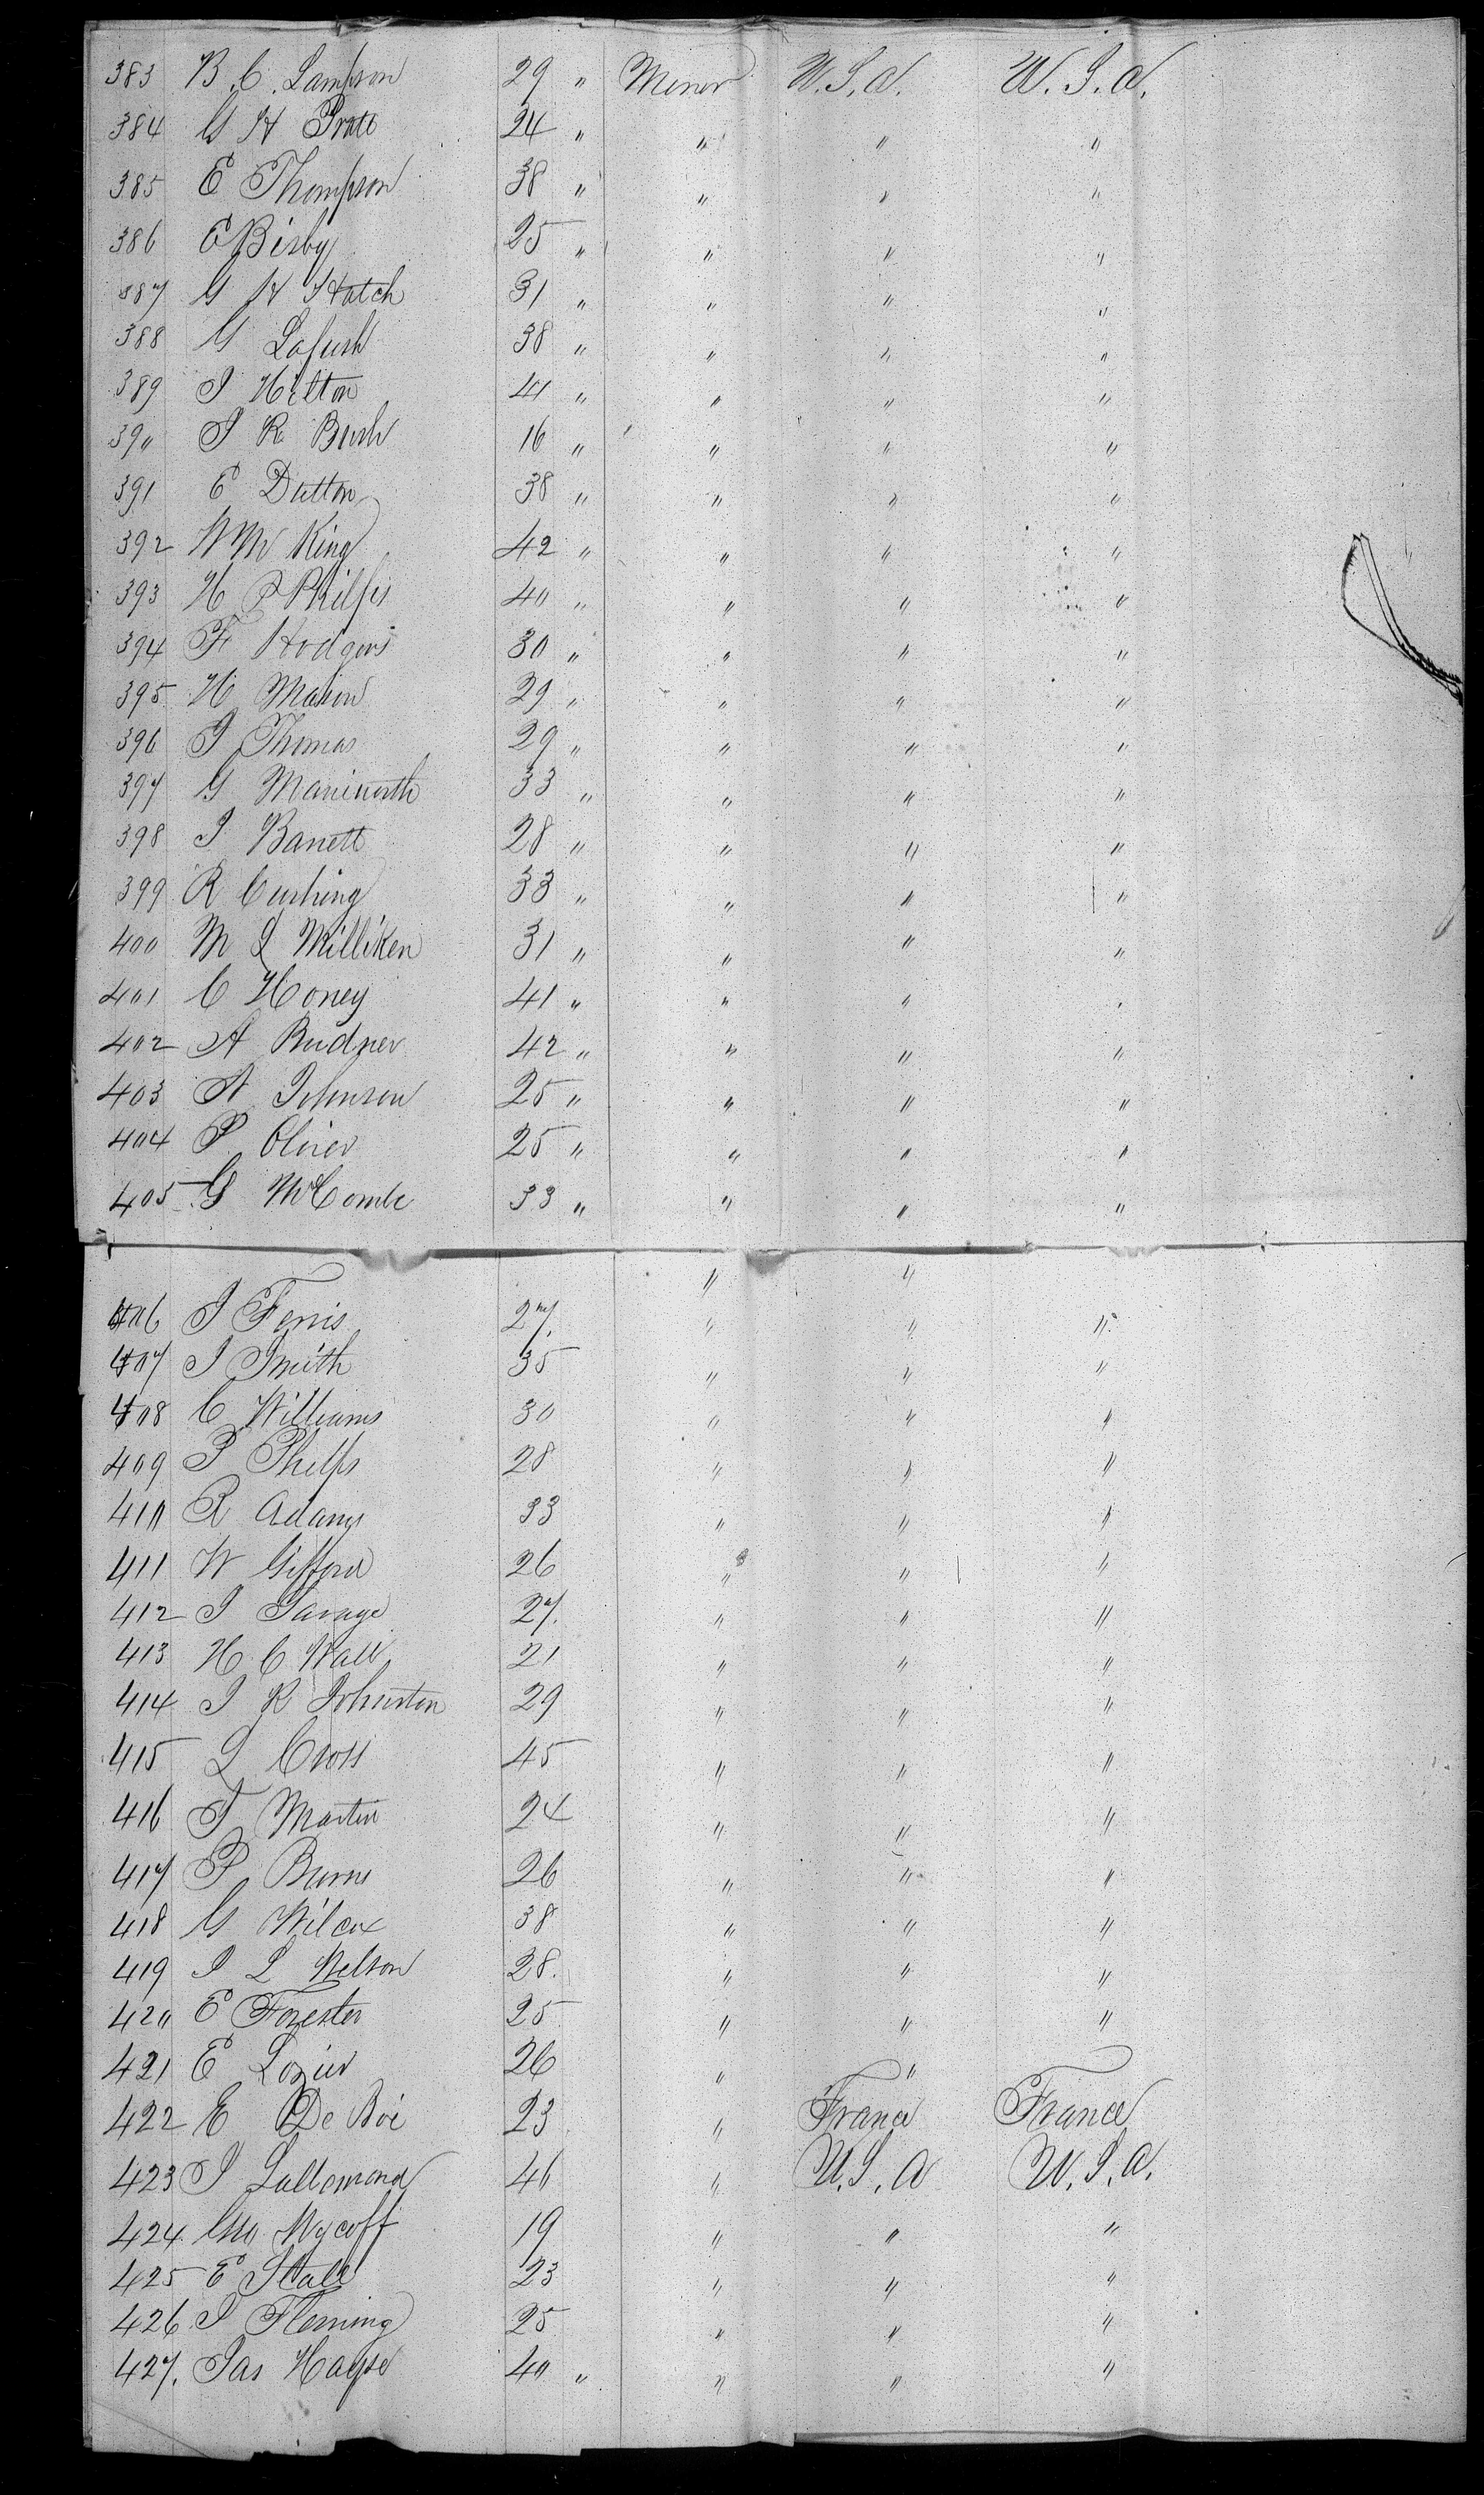 383 B. C. Lampson 29 " Miner U.S.A. U.S.A.
384 G H Pratt 24 " " " "
385 E Thompson 38 " " " "
386 E Bisby 25 " " " "
387 G H Hatch 31 " " " "
388 G 38 " " " "
389 J Hilton 41 " " " "
390 J R Bush 16 " " " "
391 E Dutton 38 " " " "
392 Wm King 42 " " " "
393 H P 40 " " " "
394 F 30 " " " "
395 H Mason 29 " " " "
396 J Thomas 29 " " " "
397 G 33 " " " "
398 J Barrett 28 " " " "
399 R Cushing 33 " " " "
400 M L Milliken 31 " " " "
401 C Honey 41 " " " "
402 A 42 " " " "
403 A Johnson 25 " " " "
404 P Oliver 25 " " " "
405 G McCombe 33 " " " "
" "
406 J Ferris 27. " " "
407 J Smith 35 " " "
408 C Williams 30 " " "
409 P Phelps 28 " " "
410 R Adams 33 " " "
411 W Gifford 26 " " "
412 J Savage 27. " " "
413 H C Wall 21 " " "
414 J R Johnston 29 " " "
415 L Cross 45 " " "
416 T Martin 24 " " "
417 P Burns 26 " " "
418 G Wilcox 38 " " "
419 J L Nelson 28. " " "
420 E Forester 25 " " "
421 E Lozier 26 " "
422 E De Boi 23 " France France
423 J Lallemand 46 " U.S.A U.S.A.
424. Geo Wycoff 19 " " "
425 E Stall 23 " " "
426 J Fleming 25 " " "
427. Jas 40 " " " "